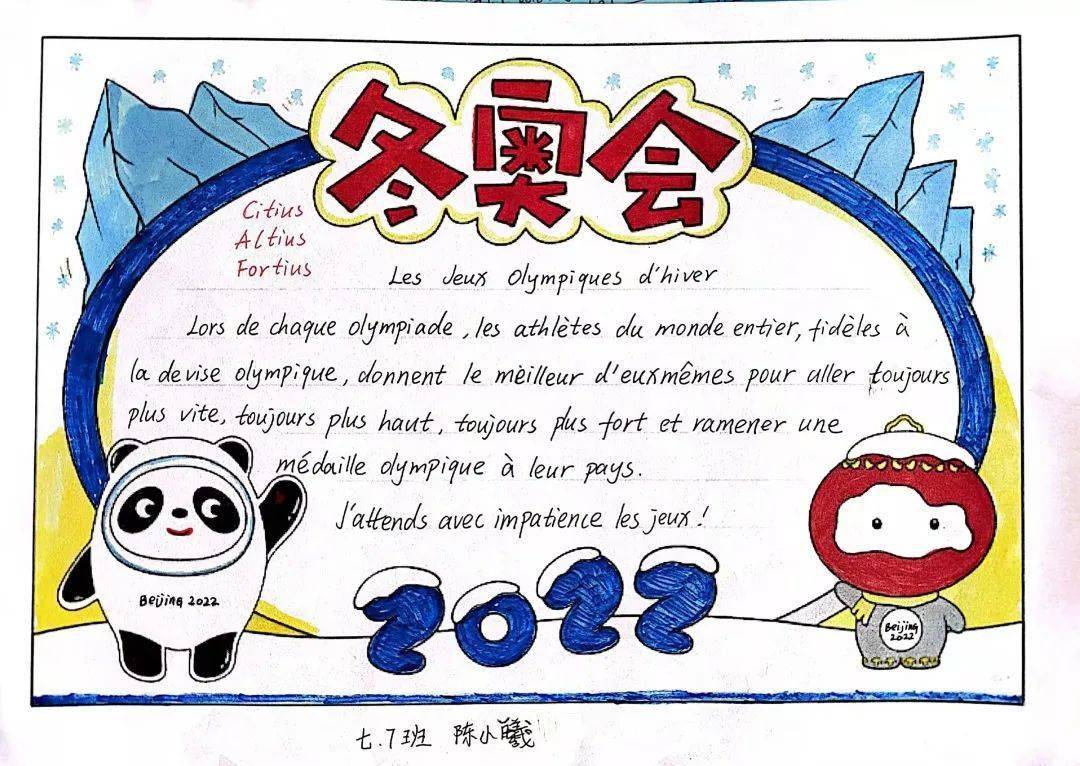 冬奥会
Citius
Altius
Fortius
Les Jeux Olympiques d'hiver
Lors de chaque olympiade, les athlètes du monde entier, fidèles à
la devise olympique, donnent le mèilleur d'euxmêmes pour aller toujours
plus vite, toujours plus haut, toujours plus fort et ramener une
médaille olympique à leur pays.
J'attends avec impatience les jeux!
Beijing 2022
2022
Beijing
2022
七.7班 陈小曦